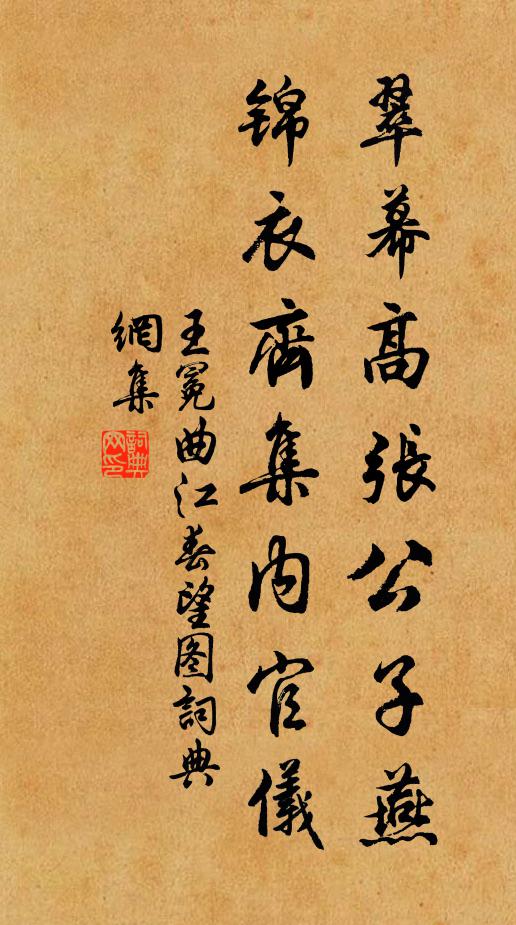 翠幕高張公子燕
錦衣齊集内官儀
王冕曲江春望图詞典
網集
詞典
网印